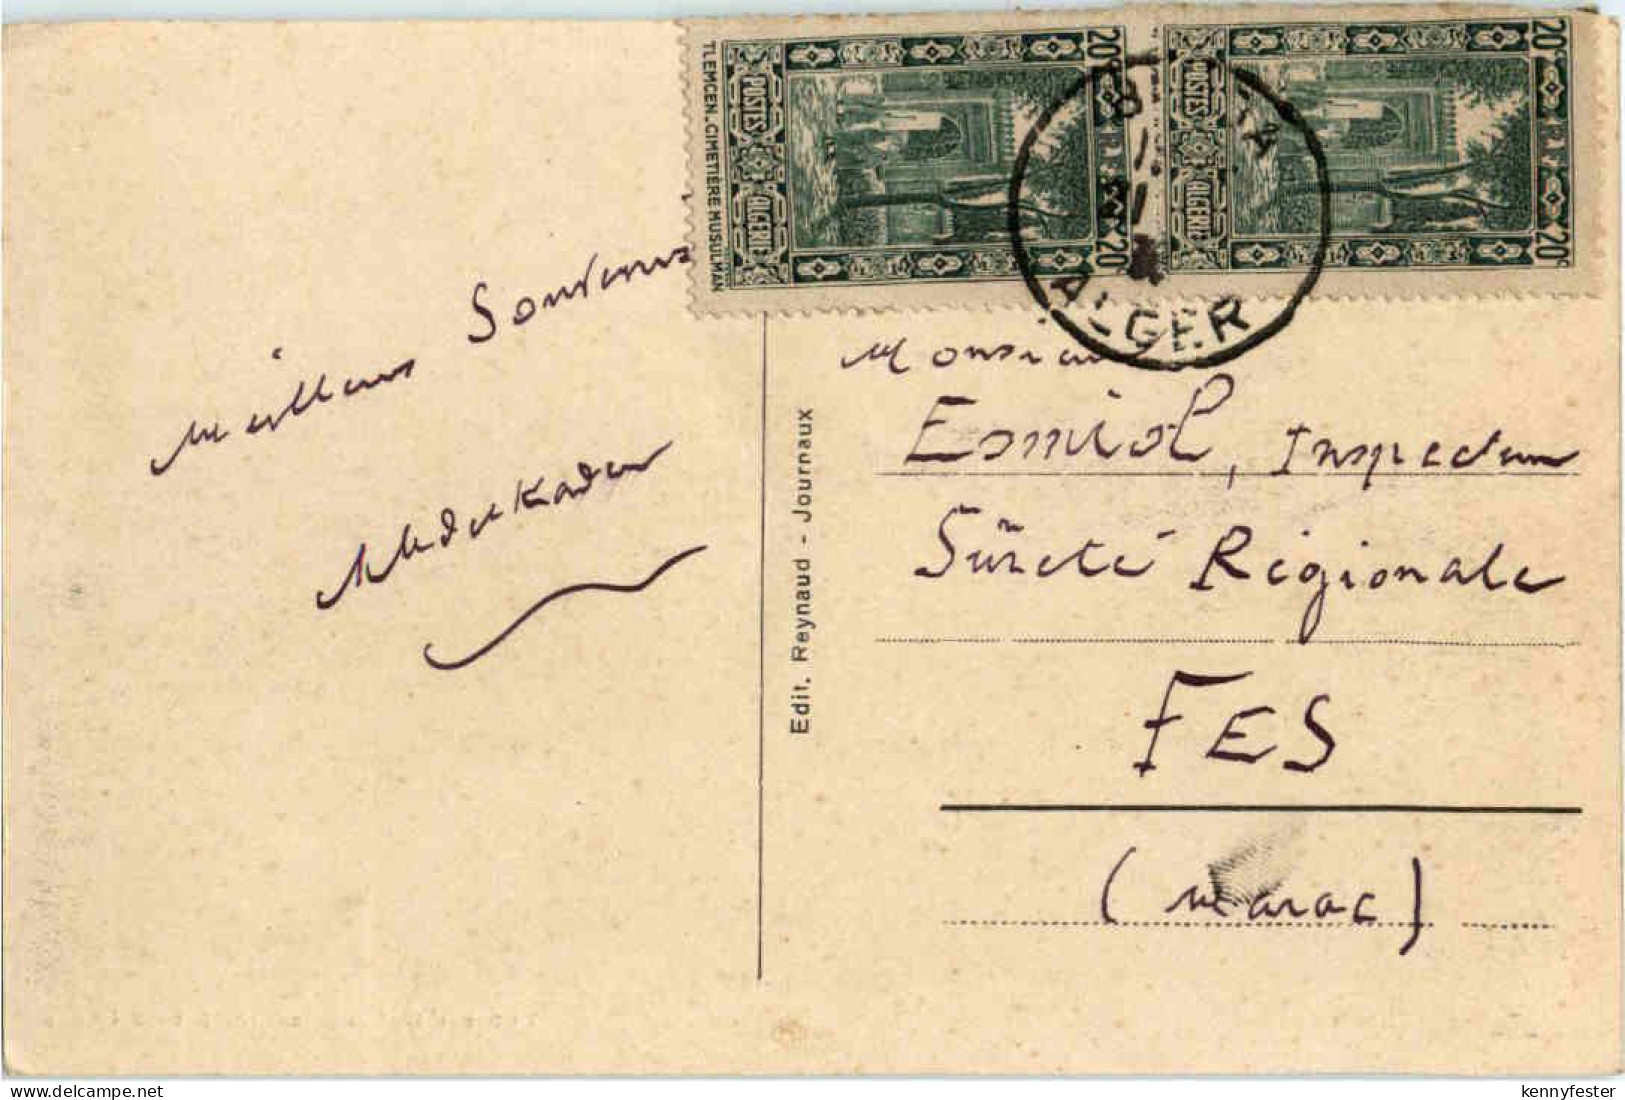 TLEMCEN. CIMETIÈRE MUSULMAN
POSTES ALGERIE
20c RF 20c
POSTES ALGERIE
20c RF 20c
ALGER
Meilleurs Souvenirs
Abdelkader
Edit. Reynaud - Journaux
Monsieur
Esmiol, Inspecteur
Sûreté Régionale
FES
(Maroc)
kennyfester